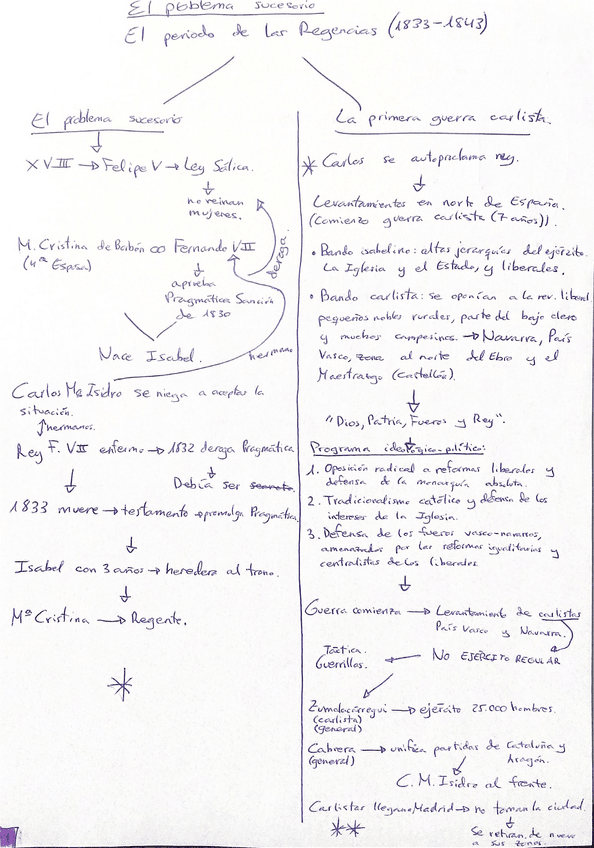 El problema sucesorio
El periodo de las Regencias (1833-1843)
El problema sucesorio
XVIII → Felipe V → Ley Sálica.
no reinan
mujeres.
M. Cristina de Borbón ∞ Fernando VII
(4ª Esposa)
deroga.
aprueba
Pragmática Sanción
de 1830
Nace Isabel.
hermano
Carlos Mª Isidro se niega a aceptar la
situación.
↑hermanos.
Rey F. VII enfermo → 1832 deroga Pragmática
Debía ser secreto.
1833 muere → testamento → promulga Pragmática.
Isabel con 3 años → heredera al trono.
Mª Cristina → Regente.
*
La primera guerra carlista.
* Carlos se autoproclama rey.
Levantamientos en norte de España.
(Comienzo guerra carlista (7 años)).
• Bando isabelino: altas jerarquías del ejército.
La Iglesia y el Estado, y liberales.
• Bando carlista: se oponían a la rev. liberal
pequeños nobles rurales, parte del bajo clero
y muchos campesinos. → Navarra, País
Vasco, zona al norte del Ebro y el
Maestrazgo (Castellón).
"Dios, Patria, Fueros y Rey".
Programa ideológico-político:
1. Oposición radical a reformas liberales y
defensa de la monarquía absoluta.
2. Tradicionalismo católico y defensa de los
intereses de la Iglesia.
3. Defensa de los fueros vasco-navarros,
amenazados por las reformas igualitarias y
centralistas de los liberales
Guerra comienza → Levantamiento de carlistas
País Vasco y Navarra.
NO EJÉRCITO REGULAR
Táctica.
Guerrillas.
Zumalacárregui → ejército 25.000 hombres.
(carlista)
(general)
Cabrera → unifica partidas de Cataluña y
(general)
Aragón.
C. M. Isidro al frente.
Carlistas llegan a Madrid → no toman la ciudad.
**
Se retiran de nuevo
a sus zonas.